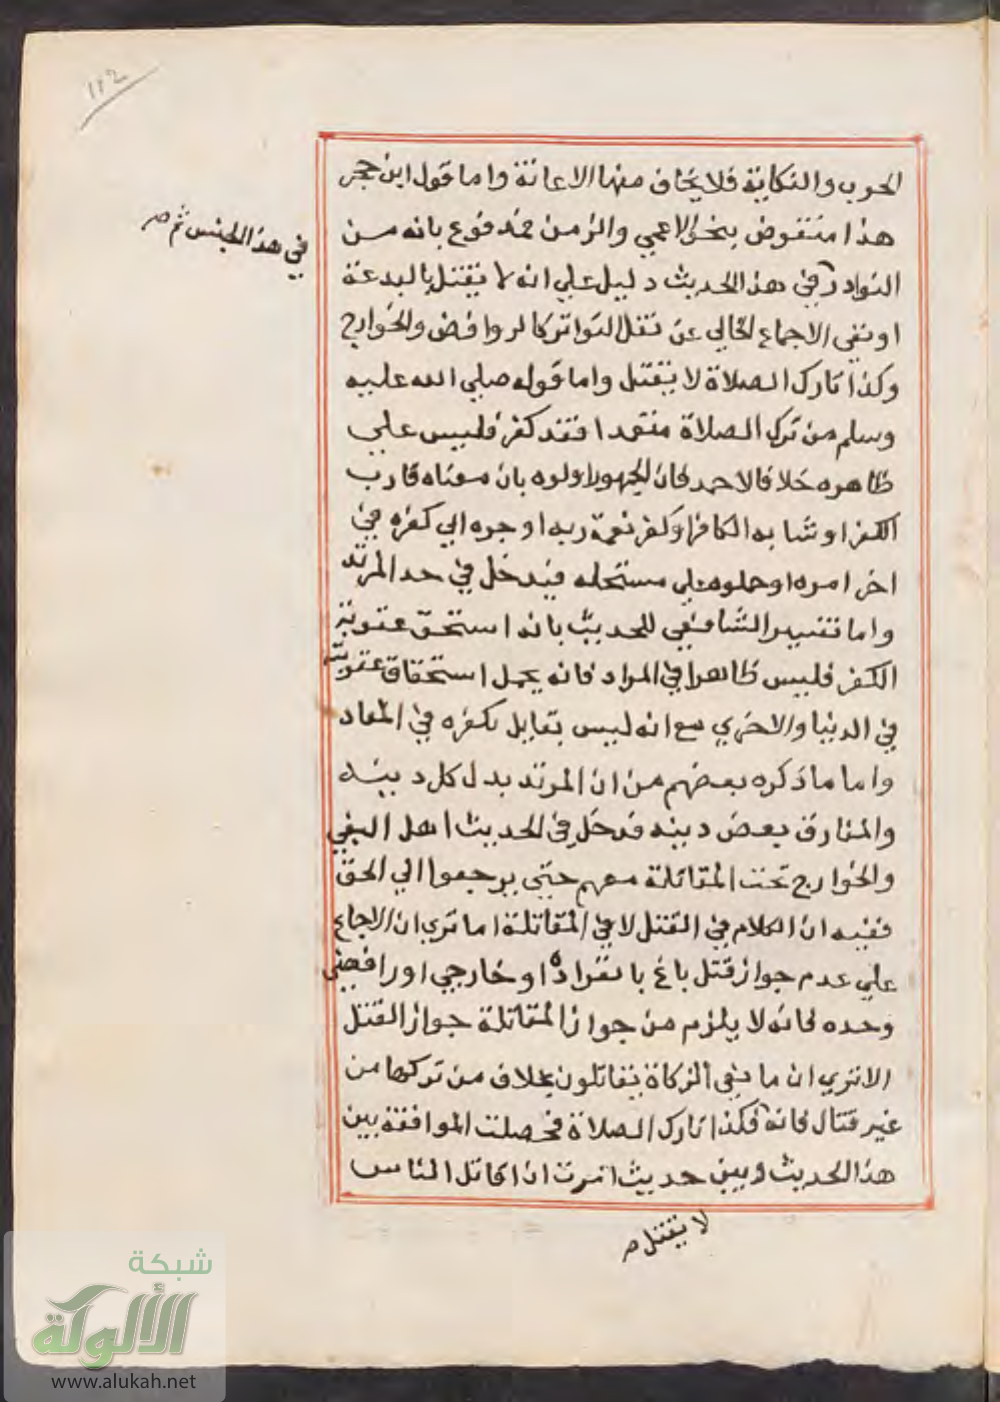 ١١٢
الحرب والنكاية فلا يخاف منها الاعانة واما قول ابن حجر
هذا منقوض بنحو الاعمي والزمن فمدفوع بانه من
النوادر في هذا الحديث دليل علي انه لا يقتل بالبدعة
في هذا الجنس ثم صح
او نفي الاجماع الخالي عن نقل التواتر كالروافض والخوارج
وكذا تارك الصلاة لا يقتل واما قوله صلي الله عليه
وسلم من ترك الصلاة متعمدا فقد كفر فليس علي
ظاهره خلافا لاحمد فان الجمهور اولوه بان معناه قارب
الكفر او شابه الكافر او كفر نعمة ربه او جره الي كفره في
اخر امره او حملوه علي مستحله فيدخل في حد المرتد
واما تفسير الشافعي للحديث بانه استحق عقوبة
الكفر فليس ظاهرا في المراد فانه يحمل استحقاق عقوبته
في الدنيا والاخري مع انه ليس بقايل بكفره في المعاد
واما ما ذكره بعضهم من ان المرتد بدل كل دينه
والمفارق بعض دينه فدخل في الحديث اهل البغي
والخوارج تحت المقاتلة معهم حتي يرجعوا الي الحق
ففيه ان الكلام في القتل لا في المقاتلة اما تري ان الاجماع
علي عدم جواز قتل باغ بانفراده او خارجي او رافضي
وحده فانه لا يلزم من جواز المقاتلة جواز القتل
الا تري ان مانعي الزكاة يقاتلون بخلاف من تركها من
غير قتال فانه فكذا تارك الصلاة فحصلت الموافقة بين
هذا الحديث وبين حديث امرت ان اقاتل الناس
لا يقتل صح
شبكة
الألوكة
www.alukah.net